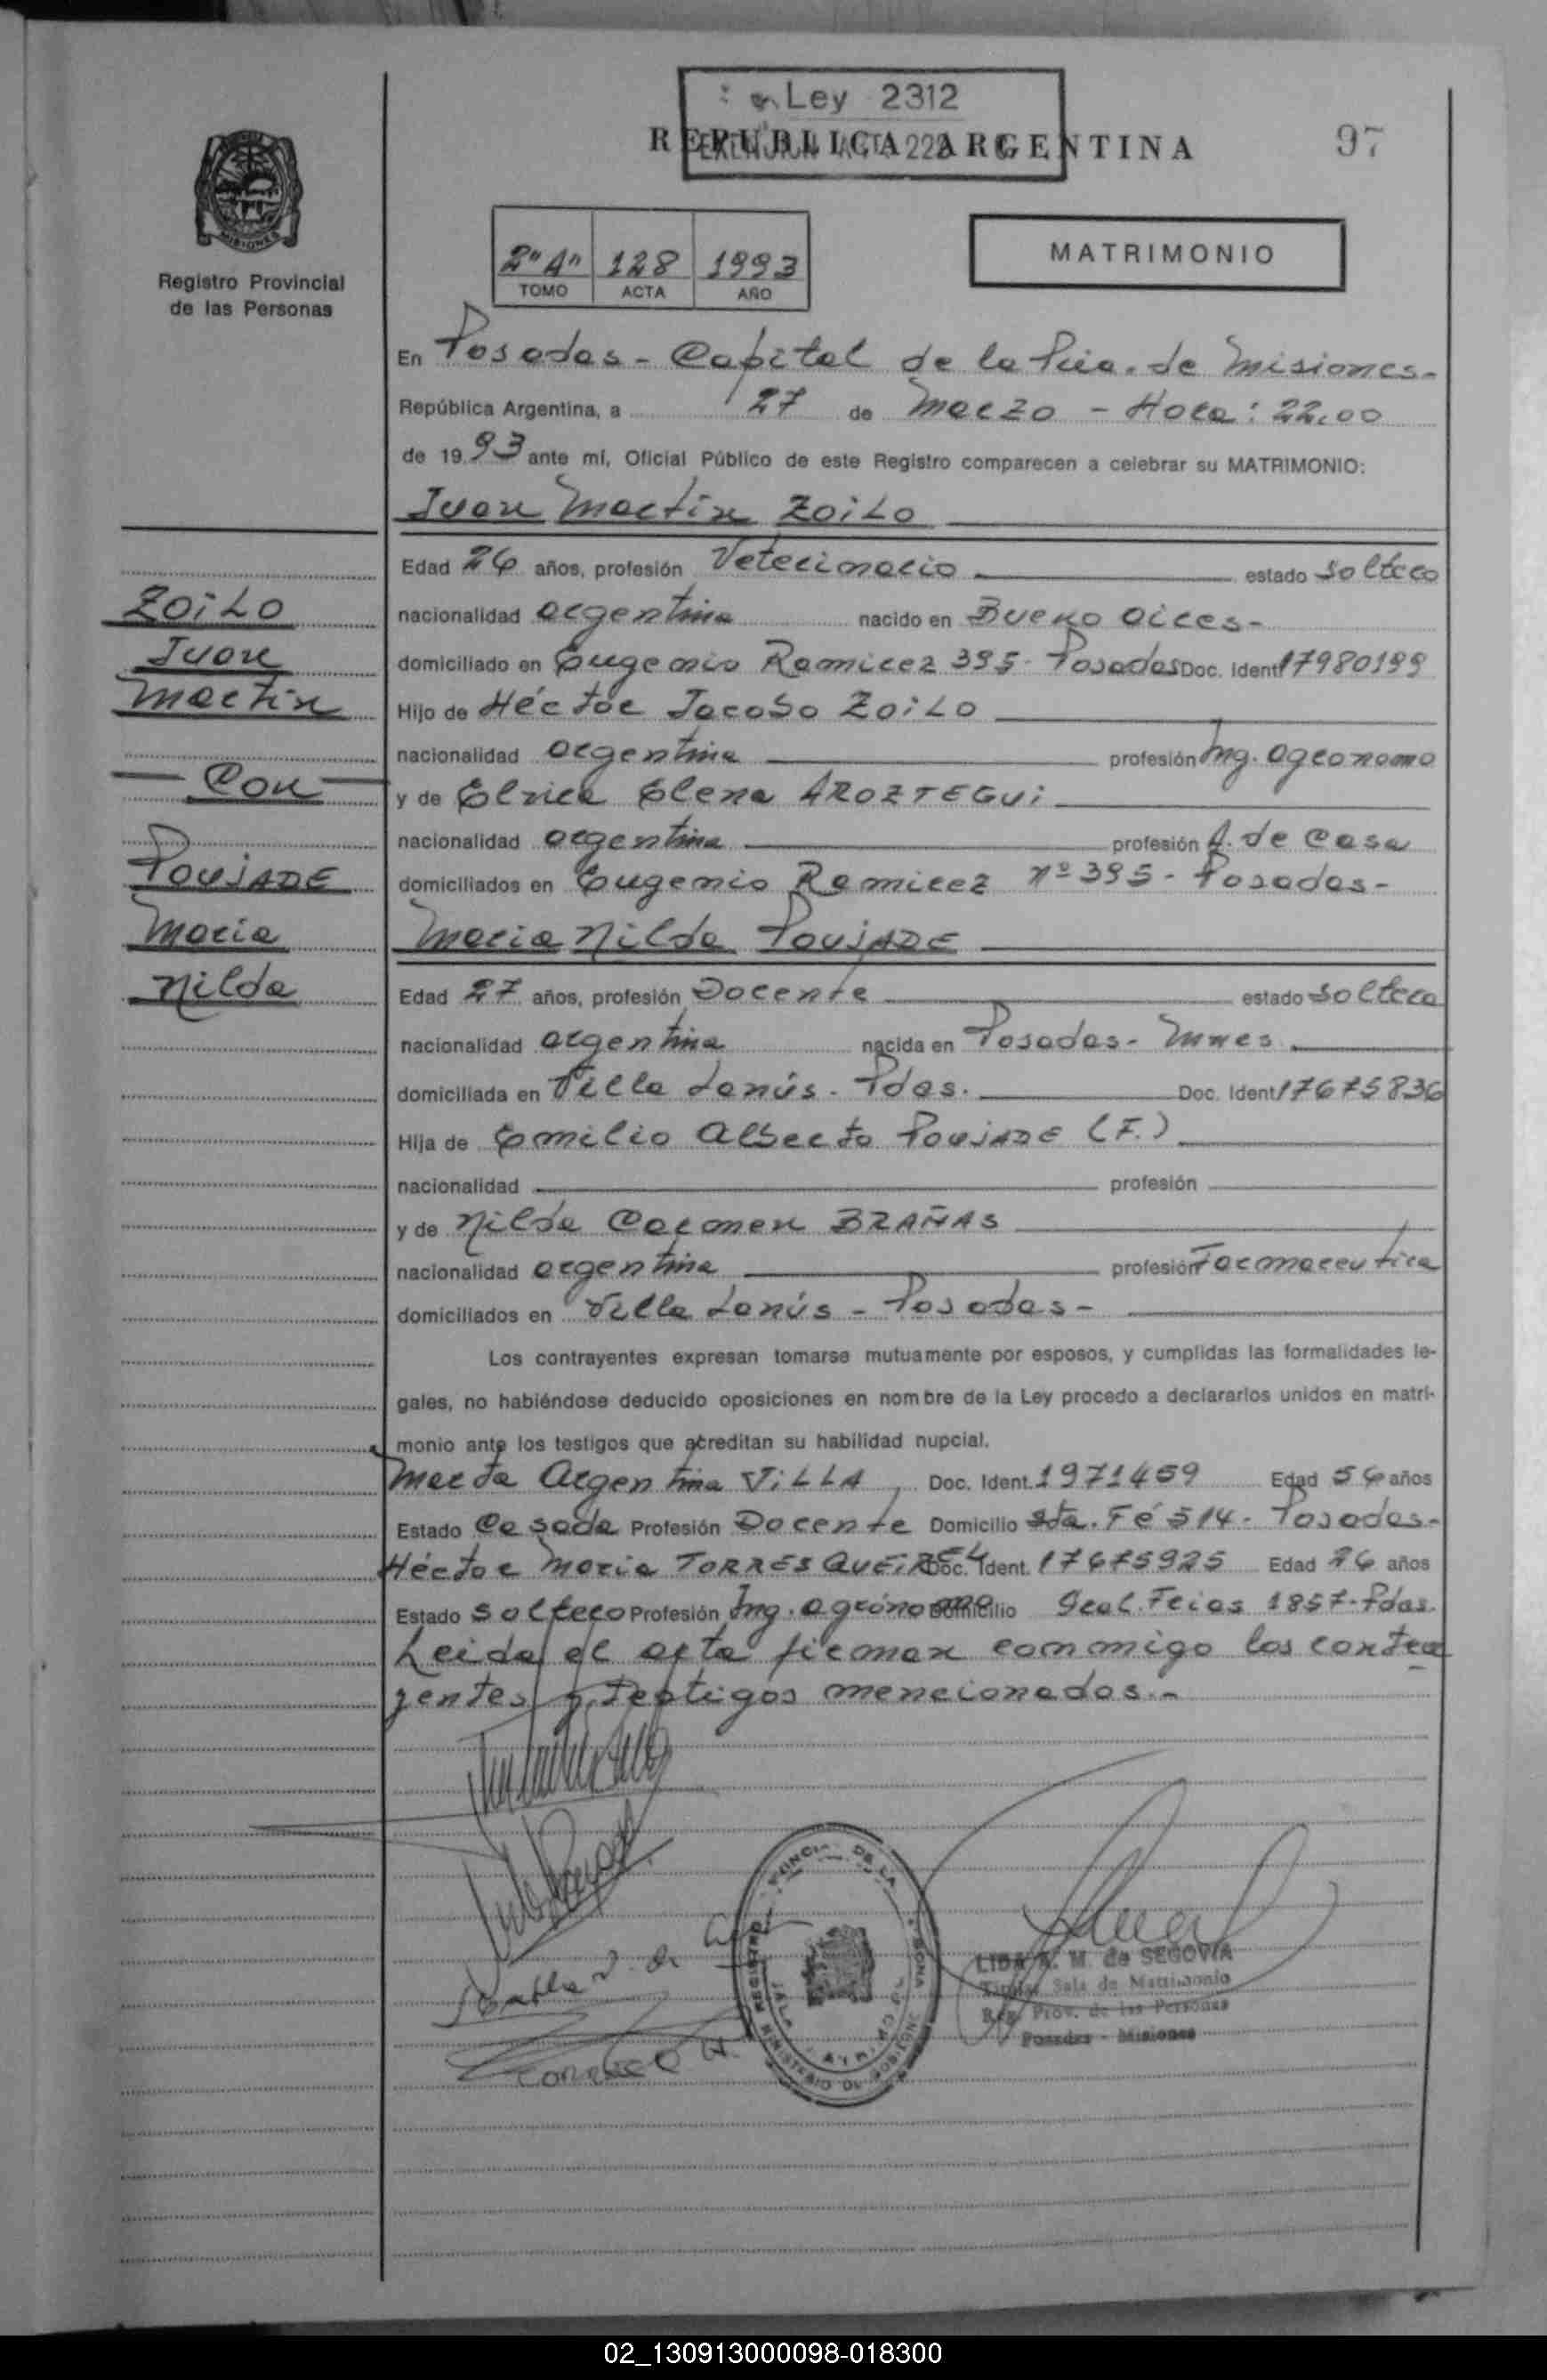 Ley 2312
REPUBLICA ARGENTINA
97
2"A" 128 1993
TOMO ACTA AÑO
MATRIMONIO
MISIONES
Registro Provincial
de las Personas
En Posadas - Capital de la Pcia. de Misiones.-
República Argentina, a 27 de Marzo - Hora: 22,00
de 1993 ante mí, Oficial Público de este Registro comparecen a celebrar su MATRIMONIO:
Juan Martin ZOILO
Edad 26 años, profesión Veterinario estado soltero
nacionalidad argentina nacido en Bueno aires-
domiciliado en Eugenio Ramirez 395- Posadas Doc. Ident 17980199
Hijo de Héctor Jacobo ZOILO
nacionalidad argentina profesión Ing. agronomo
y de Elena AROZTEGUI
nacionalidad argentina profesión A. de Casa
domiciliados en Eugenio Ramirez nº 395 - Posadas-
Maria Nilda POUJADE
Edad 27 años, profesión Docente estado soltera
nacionalidad argentina nacida en Posadas- Mnes
domiciliada en Villa Lanús - Pdas. Doc. Ident 17675836
Hija de Emilio Alberto POUJADE (F.)
nacionalidad profesión
y de Nilda Carmen BRAÑAS
nacionalidad argentina profesión Farmaceutica
domiciliados en Villa Lanús - Posadas-
Los contrayentes expresan tomarse mutuamente por esposos, y cumplidas las formalidades le-
gales, no habiéndose deducido oposiciones en nombre de la Ley procedo a declararlos unidos en matri-
monio ante los testigos que acreditan su habilidad nupcial.
Marta Argentina VILLA, Doc. Ident. 1971459 Edad 56 años
Estado Casada Profesión Docente Domicilio Sta. Fé 514- Posadas-
Héctor Maria TORRES QUEIREL Doc. Ident. 17675925 Edad 26 años
Estado soltero Profesión Ing. agrónomo Domicilio Gral. Frias 1857-Pdas.
Leida el acta firman conmigo los contra
yentes y testigos mencionados.-
ZOILO
Juan
Martin
Con
POUJADE
Maria
Nilda
LIDA A. M. de SEGOVIA
Titular Sala de Matrimonio
Reg. Prov. de las Personas
Posadas - Misiones
02_130913000098-018300